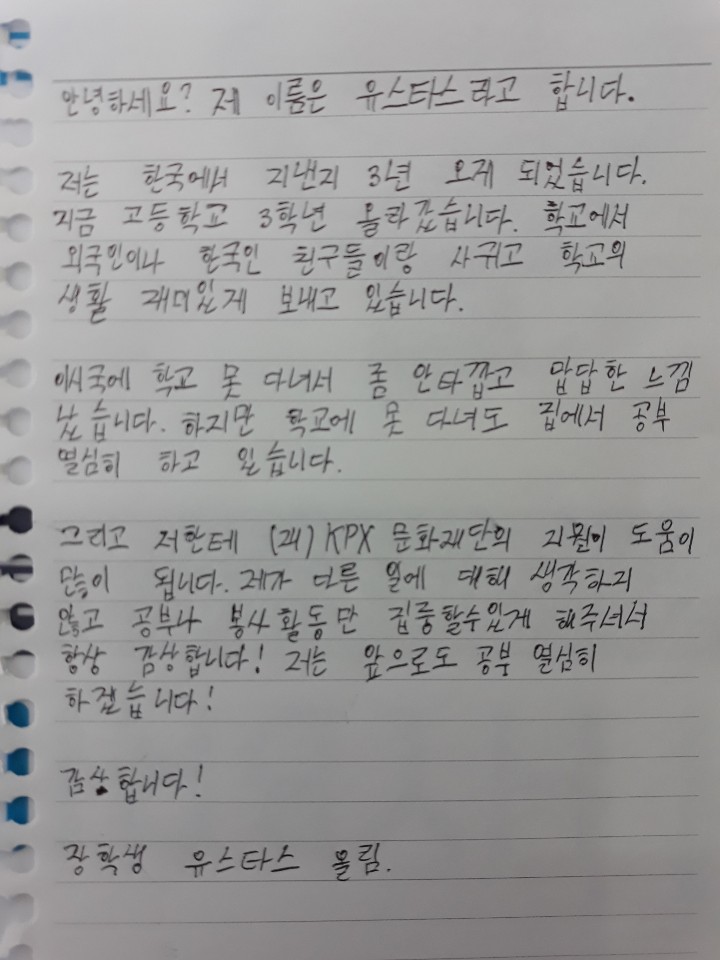 안녕하세요? 제 이름은 유스타스라고 합니다.
저는 한국에서 지낸지 3년 오게 되었습니다.
지금 고등학교 3학년 올라갔습니다. 학교에서
외국인이나 한국인 친구들이랑 사귀고 학교의
생활 재미있게 보내고 있습니다.
이시국에 학교 못 다녀서 좀 안타깝고 답답한 느낌
났습니다. 하지만 학교에 못 다녀도 집에서 공부
열심히 하고 있습니다.
그리고 저한테 (재) KPX 문화재단의 지원이 도움이
많이 됩니다. 제가 다른 일에 대해 생각하지
않고 공부나 봉사활동만 집중할수있게 해주셔서
항상 감상합니다! 저는 앞으로도 공부 열심히
하겠습니다!
감상합니다!
장학생 유스타스 올림.